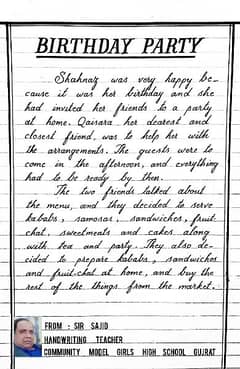 BIRTHDAY PARTY
Shahnaz was very happy be-
cause it was her birthday and she
had invited her friends to a party
at home. Qaisara her dearest and
closest friend, was to help her with
the arrangements. The guests were to
come in the afternoon, and everything
had to be ready by then.
The two friends talked about
the menu, and they decided to serve
kababs, samosas, sandwiches, fruit
chat, sweetmeats and cakes along
with tea and party. They also de-
cided to prepare kababs, sandwiches
and fruit-chat at home, and buy the
rest of the things from the market.
FROM : SIR SAJID
HANDWRITING TEACHER
COMMUNITY MODEL GIRLS HIGH SCHOOL GUJRAT